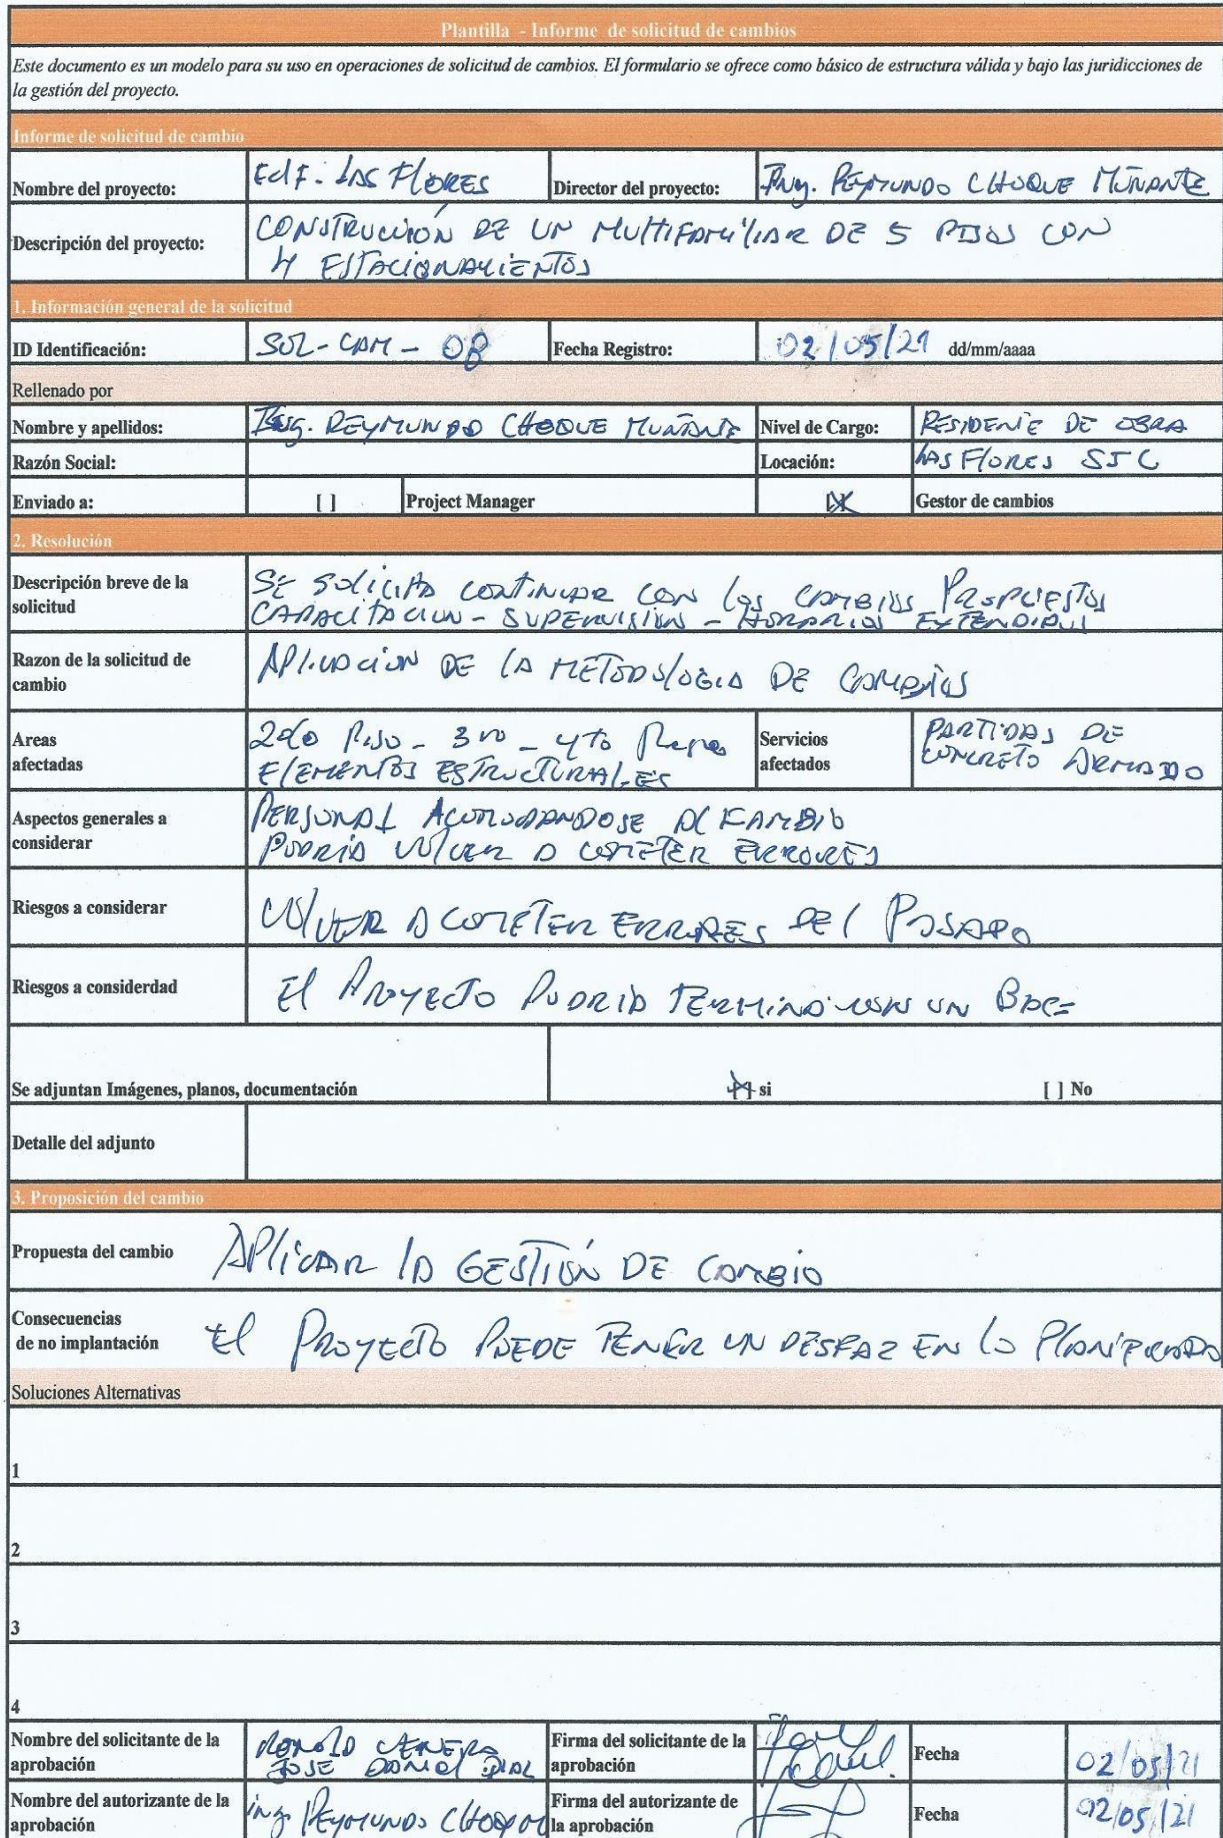 Plantilla - Informe de solicitud de cambios
Este documento es un modelo para su uso en operaciones de solicitud de cambios. El formulario se ofrece como básico de estructura válida y bajo las juridicciones de
la gestión del proyecto.
Informe de solicitud de cambio
Nombre del proyecto: Edif. LAS FLORES Director del proyecto: Ing. REYMUNDO CHOQUE MUÑANTE
Descripción del proyecto: CONSTRUCCIÓN DE UN MULTIFAMILIAR DE 5 PISOS CON
4 ESTACIONAMIENTOS
1. Información general de la solicitud
ID Identificación: SOL-CAM-08 Fecha Registro: 02/05/21 dd/mm/aaaa
Rellenado por
Nombre y apellidos: Ing. REYMUNDO CHOQUE MUÑANTE Nivel de Cargo: RESIDENTE DE OBRA
Razón Social: Locación: LAS FLORES SJC
Enviado a: [ ] Project Manager [X] Gestor de cambios
2. Resolución
Descripción breve de la
solicitud
SE SOLICITA CONTINUAR CON LOS CAMBIOS PROPUESTOS
CAPACITACION - SUPERVISION - HORARIOS EXTENDIDOS
Razon de la solicitud de
cambio
APLICACIÓN DE LA METODOLOGIA DE CAMBIOS
Areas
afectadas
2do PISO - 3ro - 4to
ELEMENTOS ESTRUCTURALES
Servicios
afectados
PARTIDAS DE
CONCRETO ARMADO
Aspectos generales a
considerar
PERSONAL ACOMODANDOSE AL KAMBIO
PODRIA VOLVER A COMETER ERRORES
Riesgos a considerar VOLVER A COMETER ERRORES DEL PASADO
Riesgos a considerdad El PROYECTO PODRIA TERMINAR CON UN
Se adjuntan Imágenes, planos, documentación [X] si [ ] No
Detalle del adjunto
3. Proposición del cambio
Propuesta del cambio APLICAR LA GESTIÓN DE CAMBIO
Consecuencias
de no implantación
El PROYECTO PUEDE TENER UN DESFAZ EN LO PLANIFICADO
Soluciones Alternativas
1
2
3
4
Nombre del solicitante de la
aprobación
RONALD
JOSE
Firma del solicitante de la
aprobación
Fecha 02/05/21
Nombre del autorizante de la
aprobación
ing. REYMUNDO CHOQUE
Firma del autorizante de
la aprobación
Fecha 02/05/21